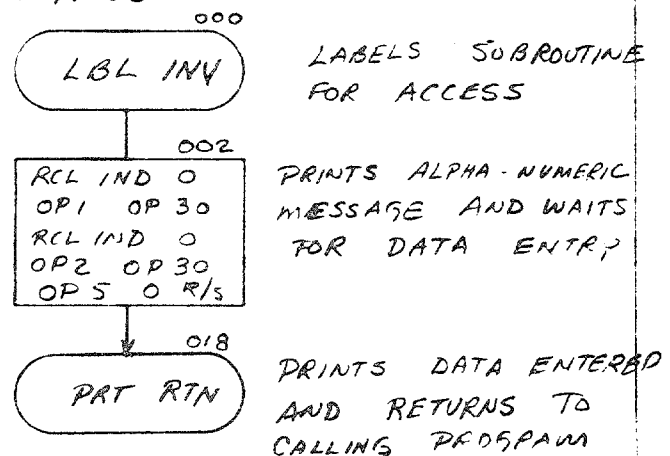 000
LBL INV
LABELS SUBROUTINE
FOR ACCESS
002
RCL IND 0
OP1 OP 30
RCL IND 0
OP2 OP 30
OP 5 0 R/S
PRINTS ALPHA-NUMERIC
MESSAGE AND WAITS
FOR DATA ENTRY
018
PRT RTN
PRINTS DATA ENTERED
AND RETURNS TO
CALLING PROGRAM